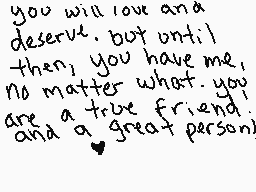 you will love and
deserve. but until
then, you have me,
no matter what. you
are a true friend!
and a great person!